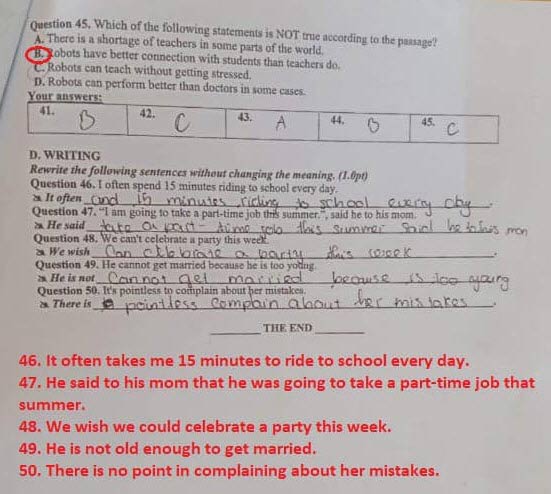 Question 45. Which of the following statements is NOT true according to the passage?
A. There is a shortage of teachers in some parts of the world.
B. Robots have better connection with students than teachers do.
C. Robots can teach without getting stressed.
D. Robots can perform better than doctors in some cases.
Your answers:
41. B 42. C 43. A 44. B 45. C
D. WRITING
Rewrite the following sentences without changing the meaning. (1.0pt)
Question 46. I often spend 15 minutes riding to school every day.
It often and 15 minutes riding to school every day.
Question 47. "I am going to take a part-time job this summer.", said he to his mom.
He said take a part-time job this summer said he to his mon
Question 48. We can't celebrate a party this week.
We wish Can celebrate a party this week.
Question 49. He cannot get married because he is too young.
He is not Cannot get married because is too young
Question 50. It's pointless to complain about her mistakes.
There is pointless complain about her mistakes.
THE END
46. It often takes me 15 minutes to ride to school every day.
47. He said to his mom that he was going to take a part-time job that
summer.
48. We wish we could celebrate a party this week.
49. He is not old enough to get married.
50. There is no point in complaining about her mistakes.